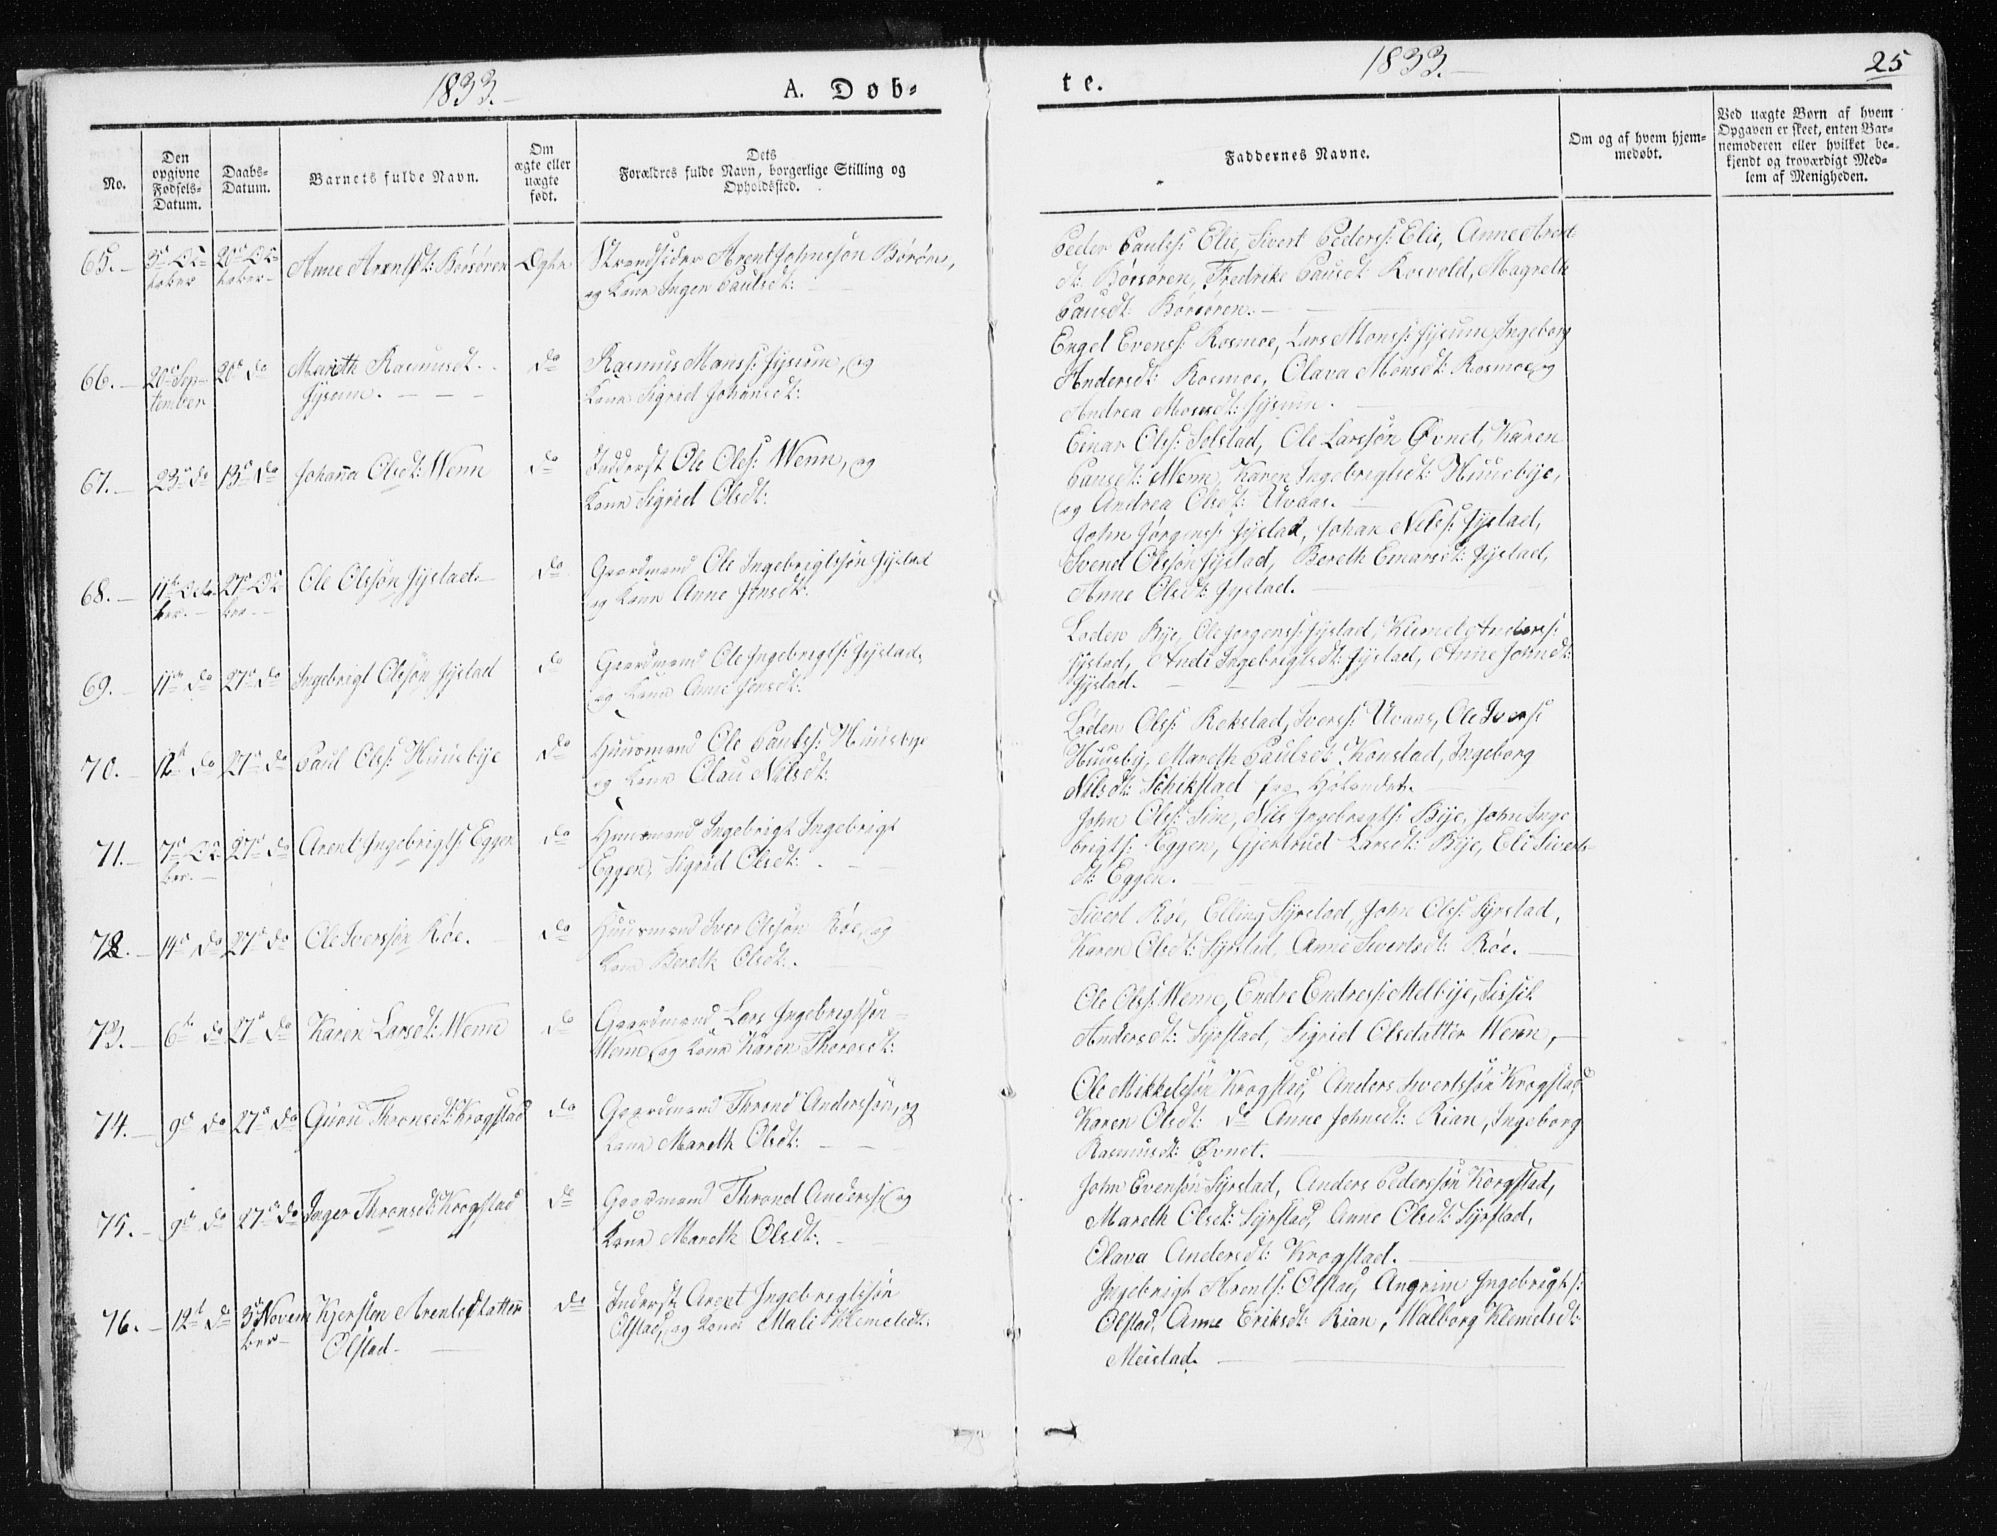 1833.
A. Døb-
te.
1833.
25
No.
Den opgivne Fødsels-Datum.
Daabs-Datum.
Barnets fulde Navn.
Om ægte eller uægte født.
Dets Forældres fulde Navn, borgerlige Stilling og Opholdssted.
Faddernes Navne.
Om og af hvem hjem-
medøbt.
Ved uægte Børn af hvem
Opgaven er skeet, enten Bar-
nemoderen eller hvilket be-
kjendt og troværdigt Med-
lem af Menigheden.
65.
Anne Arentsdt: Børsøren
Strandsider Arent Johnssøn Børøren,
og Kone Inger Paulsdt:
Peder Pauls: Elie, Sivert Peders: Elie, Anne Arent
dt: Børsøren, Fredrike Pausdt: Rosvold, Magreth
Pausdt: Børsøren.
66.
20de Sep-
tember
20de do
Mareth Rasmusdt.
do
Rasmus Monss: og
Kone Sigrid Johansdt:
Engel Evens: Rosmoe, Lars Mons: Ingeborg
Andersdt: Rosmoe, Olava Monsdt: Rosmoe og
Andrea
67.
23de do
13de do
Johanna Olsdt: Wenn
do
Inderst Ole Ols: Wenn, og
Kone Sigrid Olsdt:
Einar Ols: Solstad, Ole Larssøn Øvnet, Karen
Pausdt: Wenn, Karen Ingebrigtsdt: Huusebye,
og Andrea Olsdt: Uvaas.
68.
11te Octo-
ber.
27de
Ole Olssøn Jystad.
do
Gaardmand Ole Ingebrigtssøn Jystad
og Kone Anne Jonsdt:
John Jørgens: Jystad, Johan Nils: Jystad,
Svend Olssøn Jystad, Bereth Einarsdt: Jystad,
Anne Olsdt: Jystad.
69.
11te do
27de do
Ingebrigt Olssøn Jystad
do
Gaardmand Ole Ingebrigts: Jystad,
og Kone Anne Jonsdt:
Loden Bye, Ole Jørgens: Jystad, Klemet Anders:
Jystad, Ingebrigtsdt: Jystad, Anne Johnsdt:
Jystad.
70.
12te do
27de do
Paul Ols: Huusebye
do
Huusmand Ole Pauls: Huusbye
og Kone Olau Nilsdt:
Loden Ols: Rekstad, Ivers: Uvaas, Ole Ivers:
Huusby, Mareth Paulsdt: Konstad, Ingeborg
Nilsdt: Schikstad fra Hølandet.
71.
27de do
Arent Ingebrigts: Eggen
do
Huusmand Ingebrigt Ingebrigt
Eggen, Sigrid Olsdt:
John Ols: Nils Ingebrigts: Bye, John Inge
brigts: Eggen, Gjertrud Larsdt: Bye, Eli Siverts
dt: Eggen.
72.
14de do
27de do
Ole Iverssøn Røe.
do
Huusmand Iver Olssøn Røe, og
Kone Bereth Olsdt:
Sivert Røe, Elling Syrstad, John Ols: Syrstad,
Karen Olsdt: Syrstad, Anne Sivertsdt: Røe.
73.
6te do
27de do
Karen Larsdt: Wenn
do
Gaardmand Lars Ingebrigtssøn
Wenn, og Kone Karen Thoresdt:
Ole Ols: Wenn, Endre Endress: Melbye, Sissil
Andersdt: Syrstad, Sigrid Olsdatter Wenn,
74.
9de do
27de do
Guru Thronsdt: Krogstad
do
Gaardmand Thrond Anderssøn, og
Kone Mareth Olsdt:
Ole Mikkelsøn Krogstad, Anders Sivertssøn Krogstad,
Karen Olsdt: do Anne Johnsdt: Rian, Ingeborg
Rasmusdt: Øvnet.
75.
9de do
27de do
Inger Thronsdt: Krogstad
do
Gaardmand Thrond Anderss: og
Kone Mareth Olsdt:
John Evensøn Syrstad, Anders Pederssøn Korgstad,
Mareth Olsdt: Syrstad, Anne Olsdt: Syrstad,
Olava Andersdt: Krogstad.
76.
12te do
3de Novem
ber
Kjersten Arentsdatter
Olstad
do
Inderst Arent Ingebrigtssøn
Olstad, og Kone Mali Klemetsdt:
Ingebrigt Arents: Olstad, Angrim Ingebrigts:
Olstad, Anne Eriksdt: Rian, Walborg Klemetsdt:
Meistad.